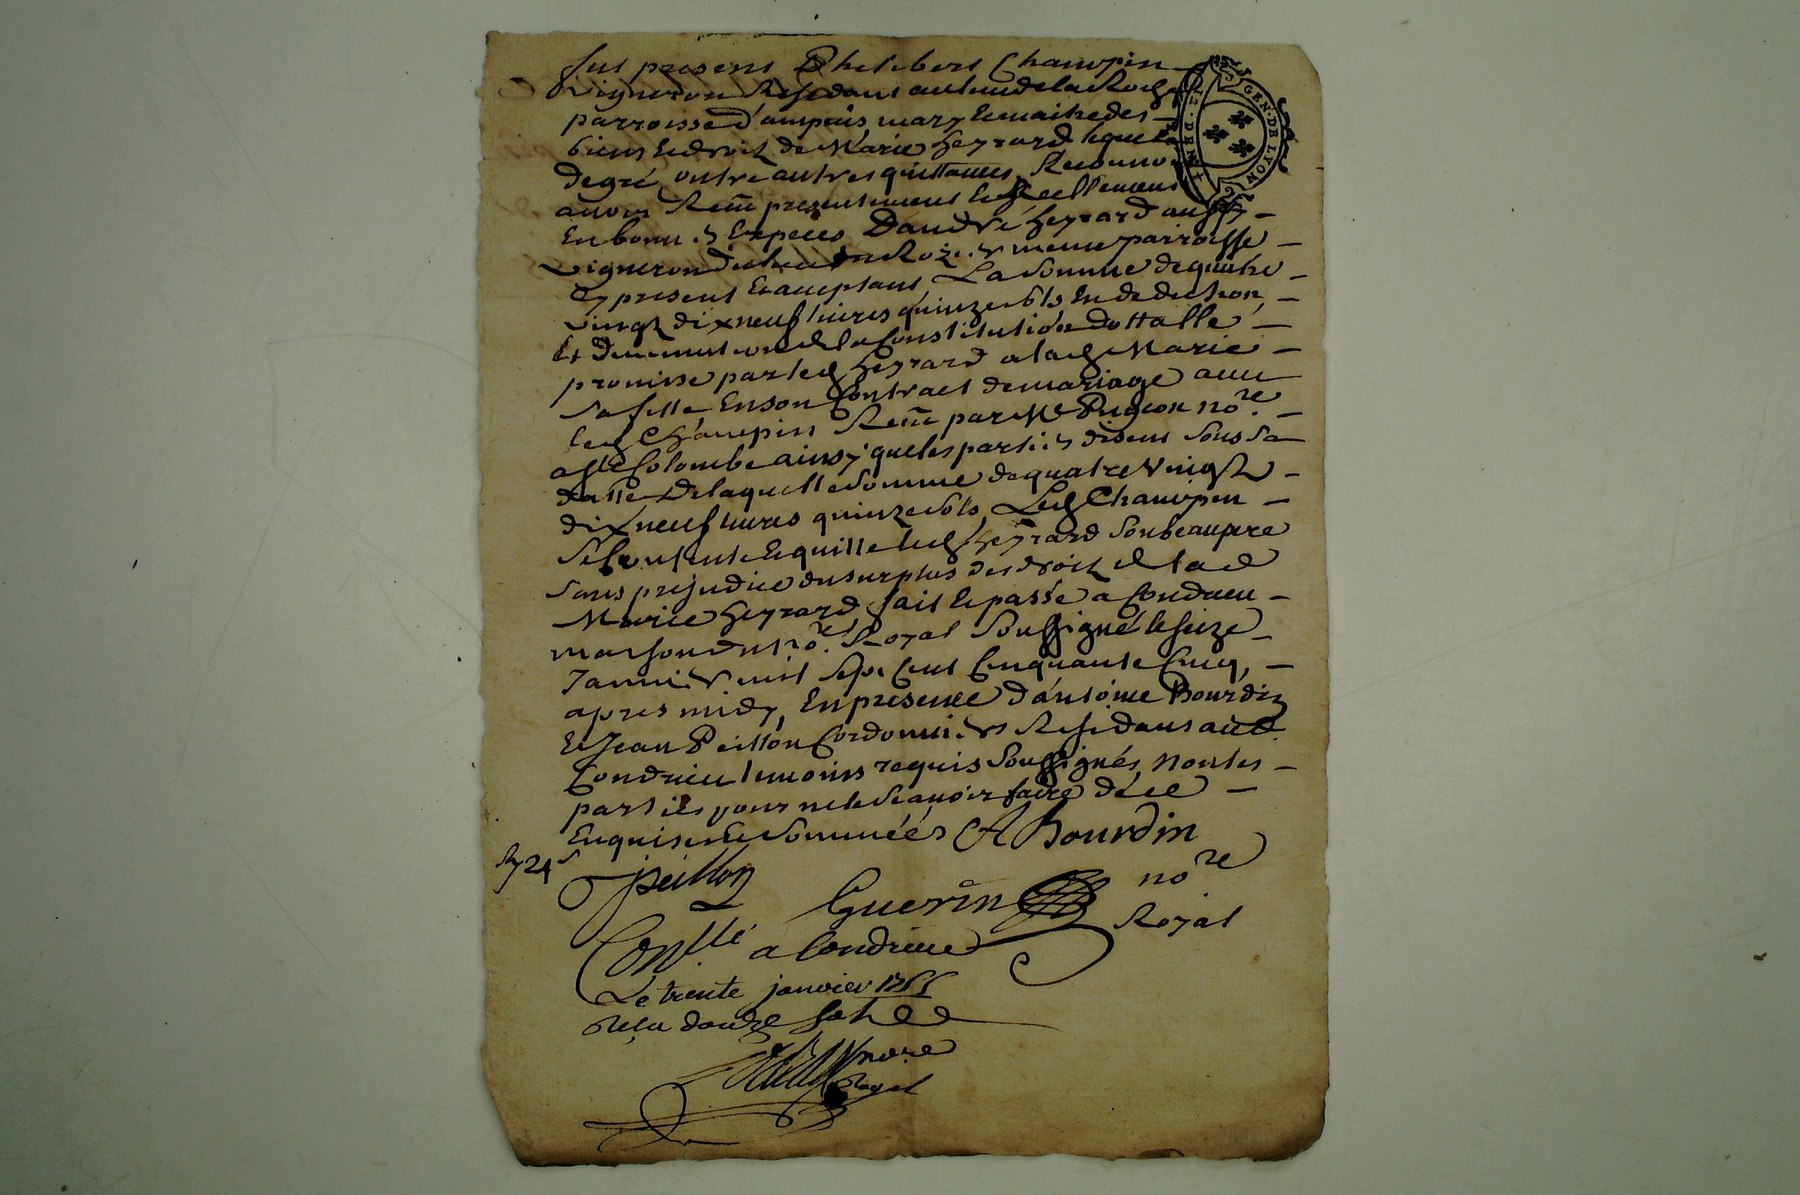 fut present Philibert Chanvpin
vigneron Residant au lieu de la Roche
parroisse d'ampuis, mary & maitre des
biens & droitz de Marie heyrard lequel
de gré, outre autres quittances, Reconnoi
avoir Receu presentement & Reellement
En bonnes Especes D'andré heyrard aussy
vigneron du lieu Roziers meme parroisse
cy present & acceptant La somme de quatre
vingt dix neuf livres quinze sols En deduction,
Et diminution de la Constitution dottalle
promise par led heyrard a lad Marie
sa fille En son Contract de mariage avec
led Chanvpin Receu par Me Pugeon nore.
a Ste Colombe ainsy que les parties disent sous sa
datte de laquelle somme de quatre vingt
dix neuf livres quinze sols, Led Chanvpin
se Contente & quitte led heyrard son beaupere
sans prejudice du surplus des droitz de lad
Marie heyrard, fait & passé a Condrieu
maison du nore. Royal soussigné le seize
Janvier mil sept cent Cinquante Cinq,
apres midy, En presence d'antoine Bourdin
& Jean Peillon Cordonniers Residants aud
Condrieu temoins requis soussignés, non les
parties pour ne le scavoir faire de ce
Enquises & sommées A Bourdin
J peillon
Guerin nore
Royal
Conllé a Condrieu
Le trente janvier 1755
Reçu douze sols
nore
Royal
GEN. DE LYON